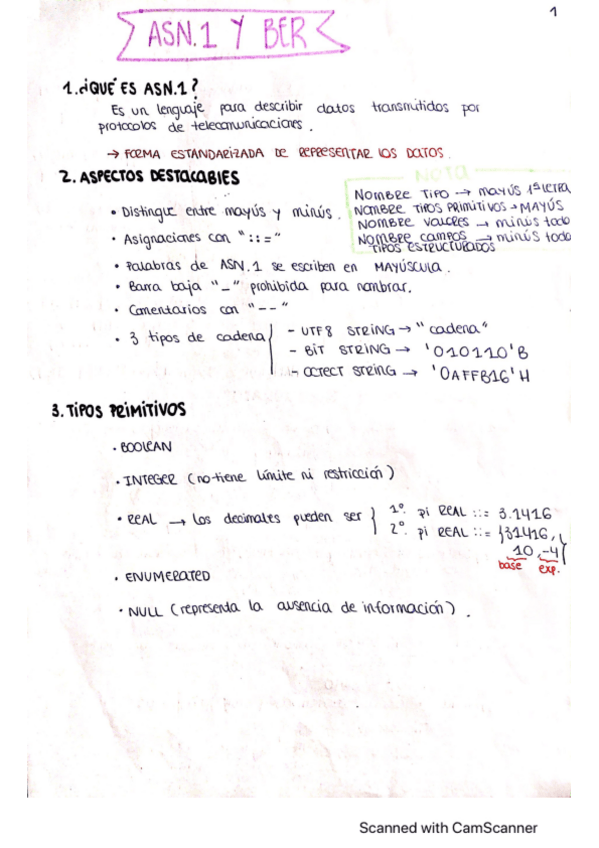 1
ASN.1 Y BER
1. ¿QUÉ ES ASN.1?
Es un lenguaje para describir datos transmitidos por
protocolos de telecomunicaciones.
→ FORMA ESTANDARIZADA DE REPRESENTAR LOS DATOS.
2. ASPECTOS DESTACABLES
NOTA
NOMBRE TIPO → MAYÚS 1ª LETRA
NOMBRE TIPOS PRIMITIVOS → MAYÚS
NOMBRE VALORES → minús todo
NOMBRE CAMPOS → minús todo
TIPOS ESTRUCTURADOS
• Distingue entre mayús y minús.
• Asignaciones con "::="
• Palabras de ASN.1 se escriben en MAYÚSCULA.
• Barra baja "_" prohibida para nombrar.
• Comentarios con "--"
• 3 tipos de cadena
- UTF8 STRING → "cadena"
- BIT STRING → '010110'B
- OCTECT STRING → '0AFFB16'H
3. TIPOS PRIMITIVOS
• BOOLEAN
• INTEGER (no tiene límite ni restricción)
• REAL → Los decimales pueden ser
1º. pi REAL ::= 3.1416
2º. pi REAL ::= {31416,
10, -4}
base exp.
• ENUMERATED
• NULL (representa la ausencia de información).
Scanned with CamScanner